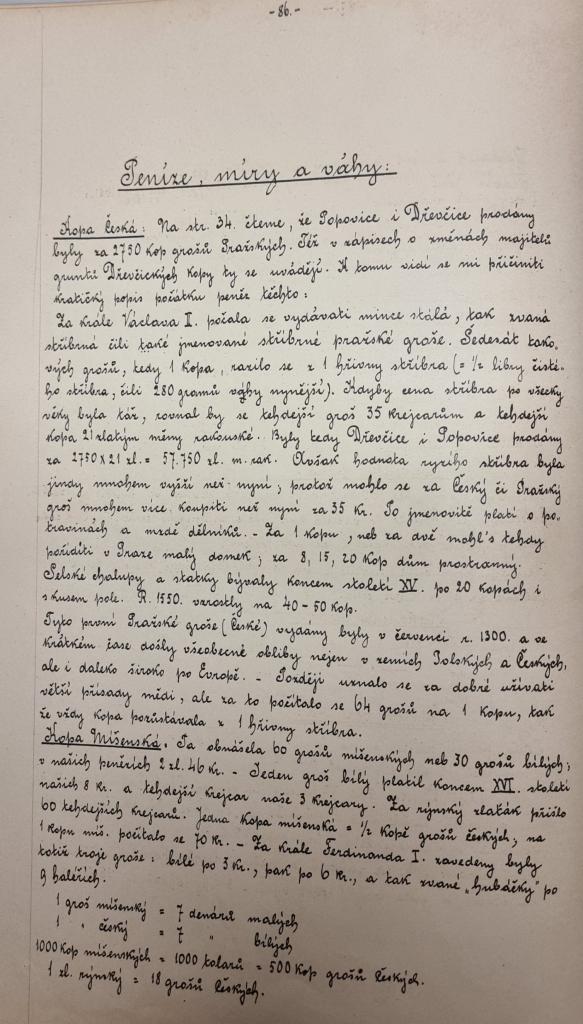 -86.-
Peníze, míry a váhy:
Kopa Česká: Na str. 34. čteme, že Popovice i Dřevčice prodány
byly za 2750 kop grošů Pražských. Též v zápisech o změnách majitelů
gruntů Dřevčických kopy ty se uvádějí. K tomu vidí se mi přičiniti
kratičký popis počátku peněz těchto:
Za krále Václava II. počala se vydávati mince stálá, tak zvaná
stříbrná čili také jmenované stříbrné pražské groše. Šedesát tako-
vých grošů, tedy 1 kopa, razilo se z 1 hřivny stříbra (= 1/2 libry čisté-
ho stříbra, čili 280 gramů váhy nynější). Kdyby cena stříbra po všecky
věky byla táž, rovnal by se tehdejší groš 35 krejcarům a tehdejší
kopa 21 zlatým měny rakouské. Byly tedy Dřevčice i Popovice prodány
za 2750 x 21 zl. = 57.750 zl. m. rak. Avšak hodnota ryzího stříbra byla
jindy mnohem vyšší než nyní; protož mohlo se za Český či Pražský
groš mnohem více koupiti než nyní za 35 kr. To jmenovitě platí o po-
travinách a mzdě dělníků. - Za 1 kopu, neb za dvě mohl's tehdy
poříditi v Praze malý domek; za 8, 15, 20 kop dům prostranný.
Selské chalupy a statky bývaly koncem století XV. po 20 kopách i
s kusem pole. R. 1550. vzrostly na 40-50 kop.
Tyto první Pražské groše (České) vydány byly v červenci r. 1300. a ve
krátkém čase došly všeobecné obliby nejen v zemích Polských a Českých,
ale i daleko široko po Evropě. - Později uznalo se za dobré užívati
větší přísady mědi, ale za to počítalo se 64 grošů na 1 kopu, tak
že vždy kopa pozůstávala z 1 hřivny stříbra.
Kopa Míšenská. Ta obnášela 60 grošů míšenských neb 30 grošů bílých;
v našich penězích 2 zl. 46 kr. - Jeden groš bílý platil koncem XVI. století
našich 8 kr. a tehdejší krejcar naše 3 krejcary. Za rýnský zlaťák přišlo
60 tehdejších krejcarů. Jedna kopa míšenská = 1/2 kopě grošů českých; na
1 kopu míš. počítalo se 70 kr. - Za krále Ferdinanda I. zavedeny byly
totiž troje groše: bílé po 3 kr., pak po 6 kr., a tak zvané „hubáčky" po
9 haléřích.
1 groš míšenský = 7 denárů malých
1 " český = 7 " bílých
1000 kop míšenských = 1000 tolarů = 500 kop grošů Českých.
1 zl. rýnský = 18 grošů Českých.